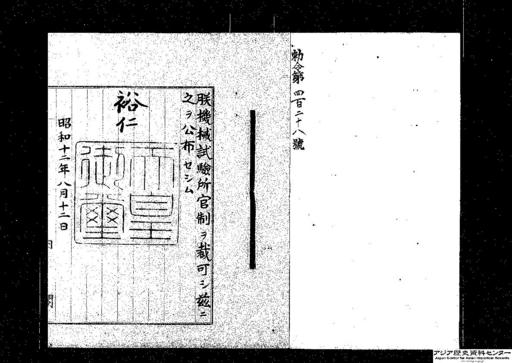 勅令第四百二十八號
朕機械試驗所官制ヲ裁可シ茲ニ
之ヲ公布セシム
裕仁
天皇御璽
昭和十二年八月十二日
アジア歴史資料センター
Japan Center for Asian Historical Records